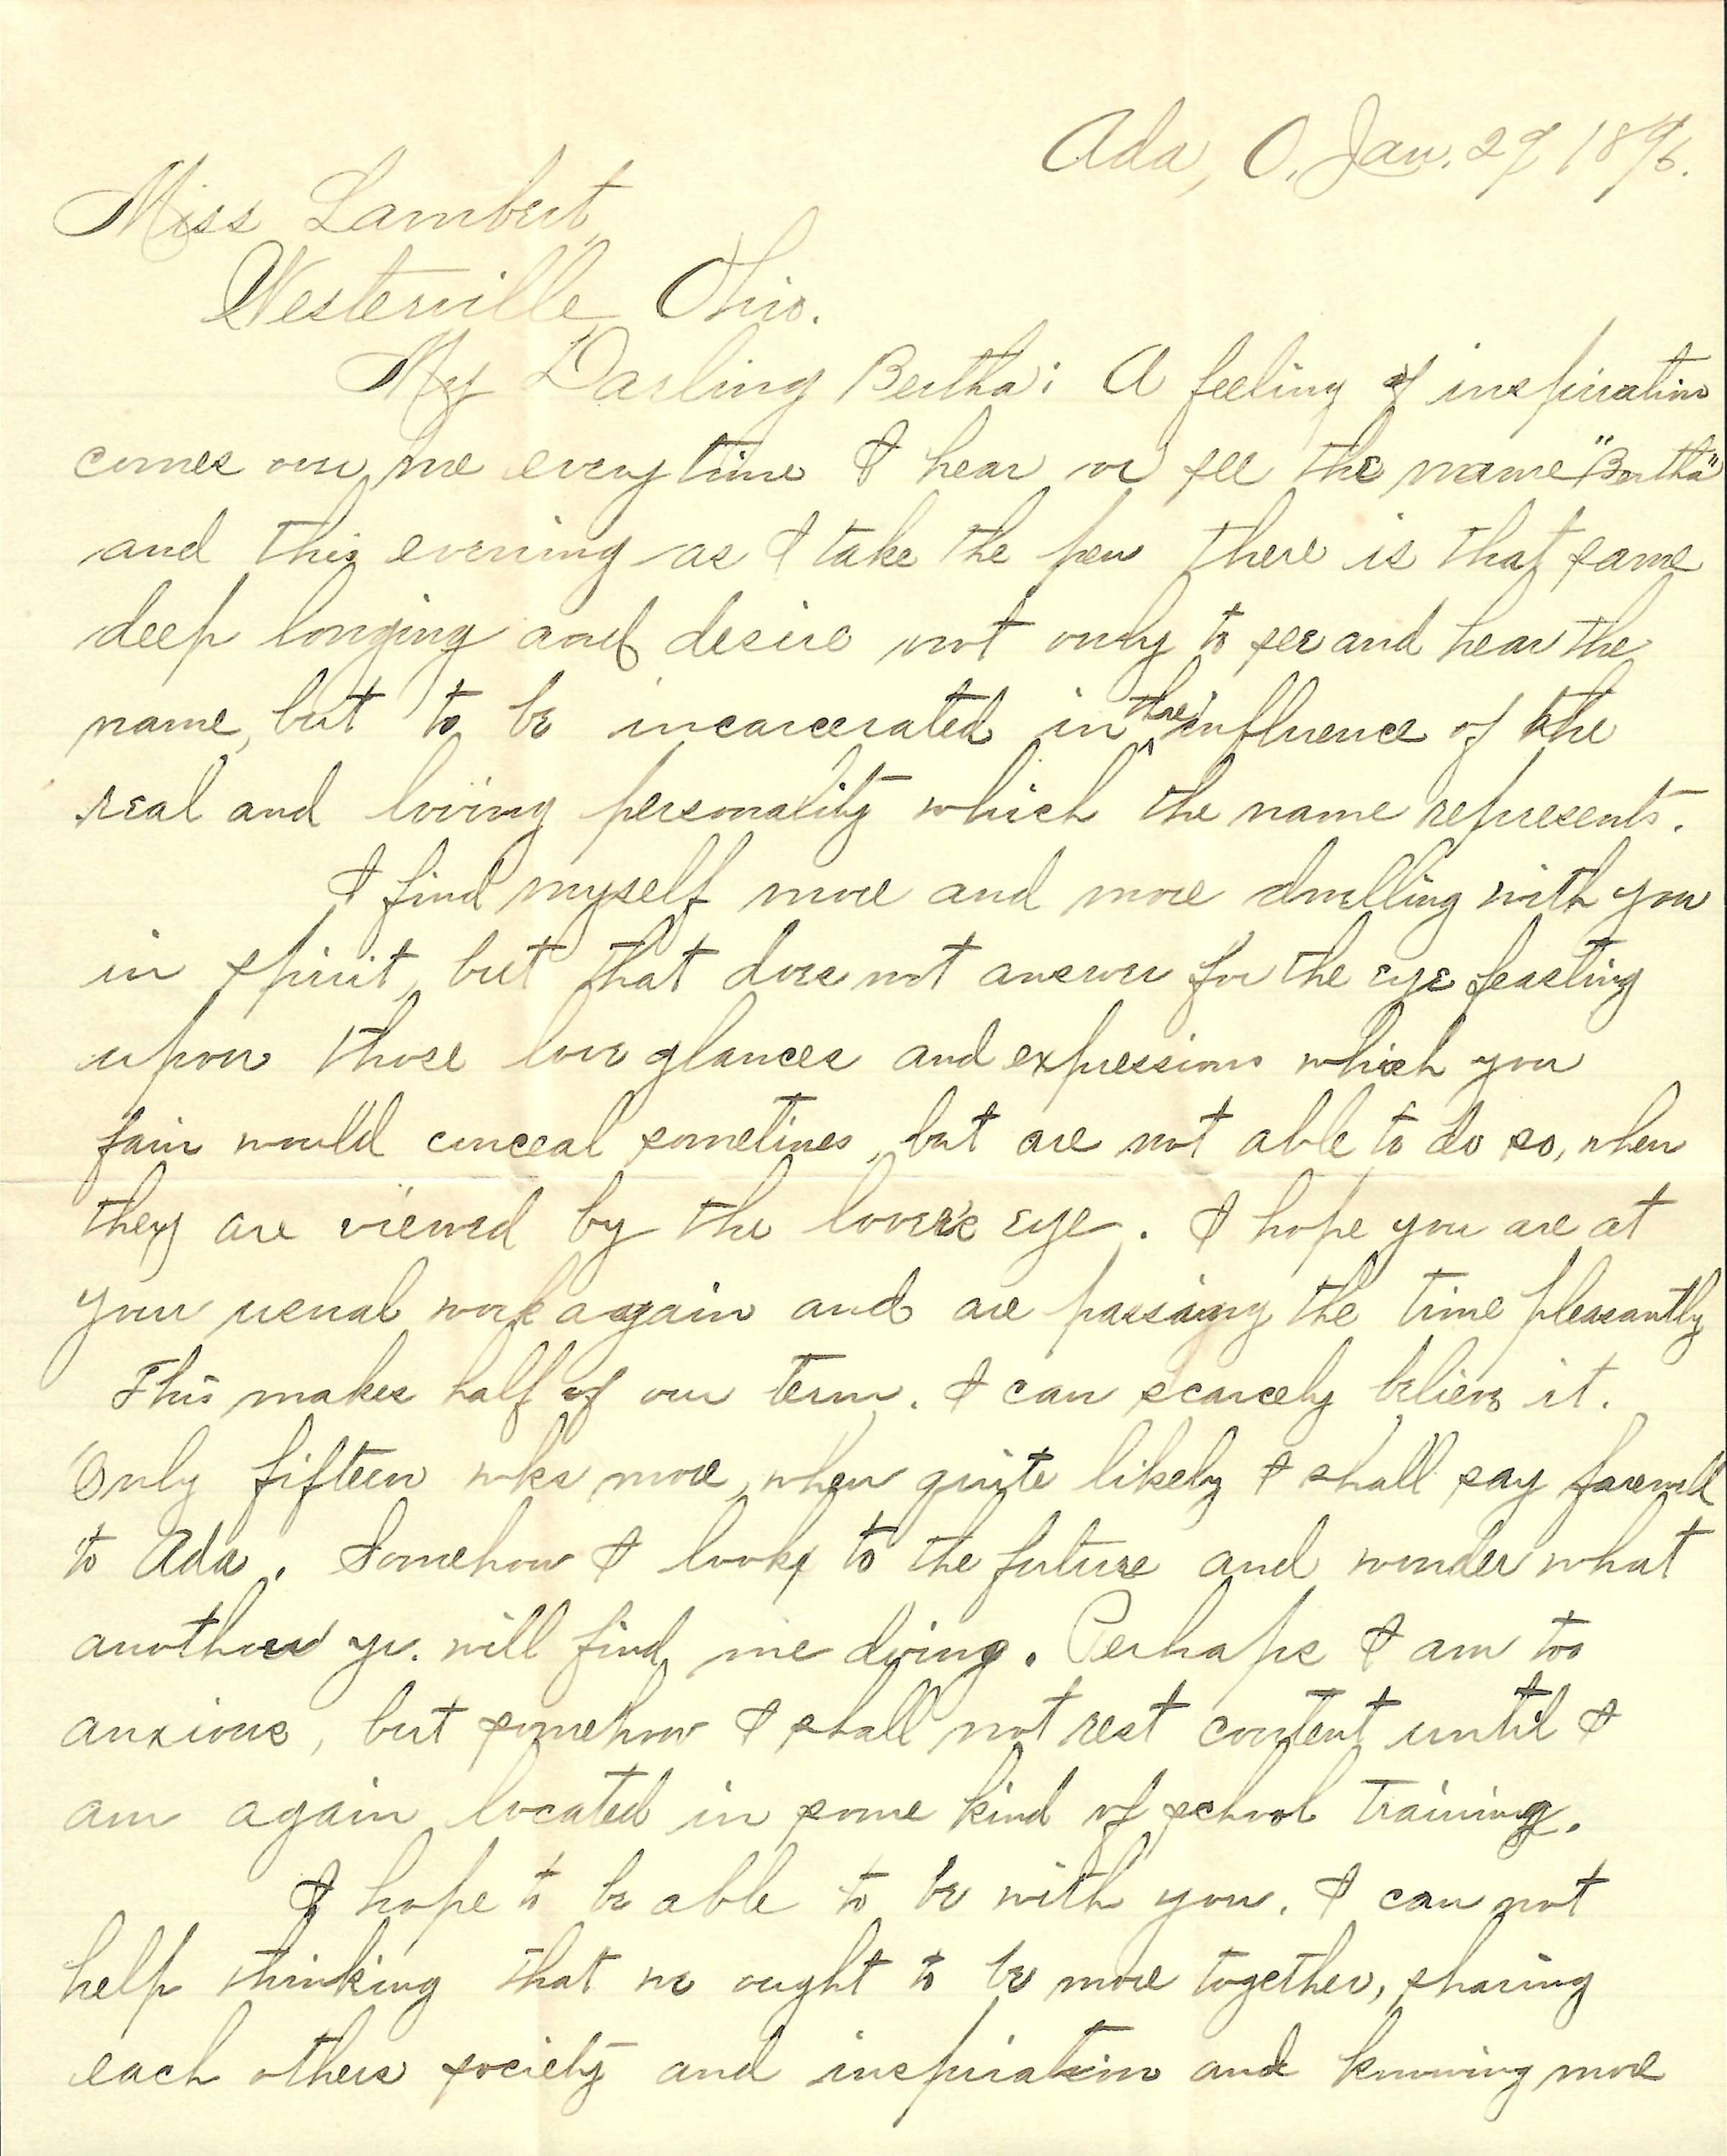 Ada, O. Jan. 29 1896.
Miss Lambert,
Westerville, Ohio.
My Darling Bertha: A feeling of inspiration
comes over me everytime I hear or see the name "Bertha"
and this evening as I take the pen there is that same
deep longing and desire not only to see and hear the
name, but to be incarcerated in the influence of the
real and loving personality which the name represents.
I find myself more and more dwelling with you
in spirit, but that does not answer for the eye feasting
upon those love glances and expressions which you
fain would conceal sometimes, but are not able to do so, when
they are viewed by the lover's eye. I hope you are at
your usual work again and are passing the time pleasantly
This makes half of our term. I can scarcely believe it.
Only fifteen wks more, when quite likely I shall say farewell
to Ada. Somehow I look to the future and wonder what
another yr. will find me doing. Perhaps I am too
anxious, but somehow I shall not rest content until I
am again located in some kind of school training.
I hope to be able to be with you. I can not
help thinking that we ought to be more together, sharing
each others society and inspiration and knowing more